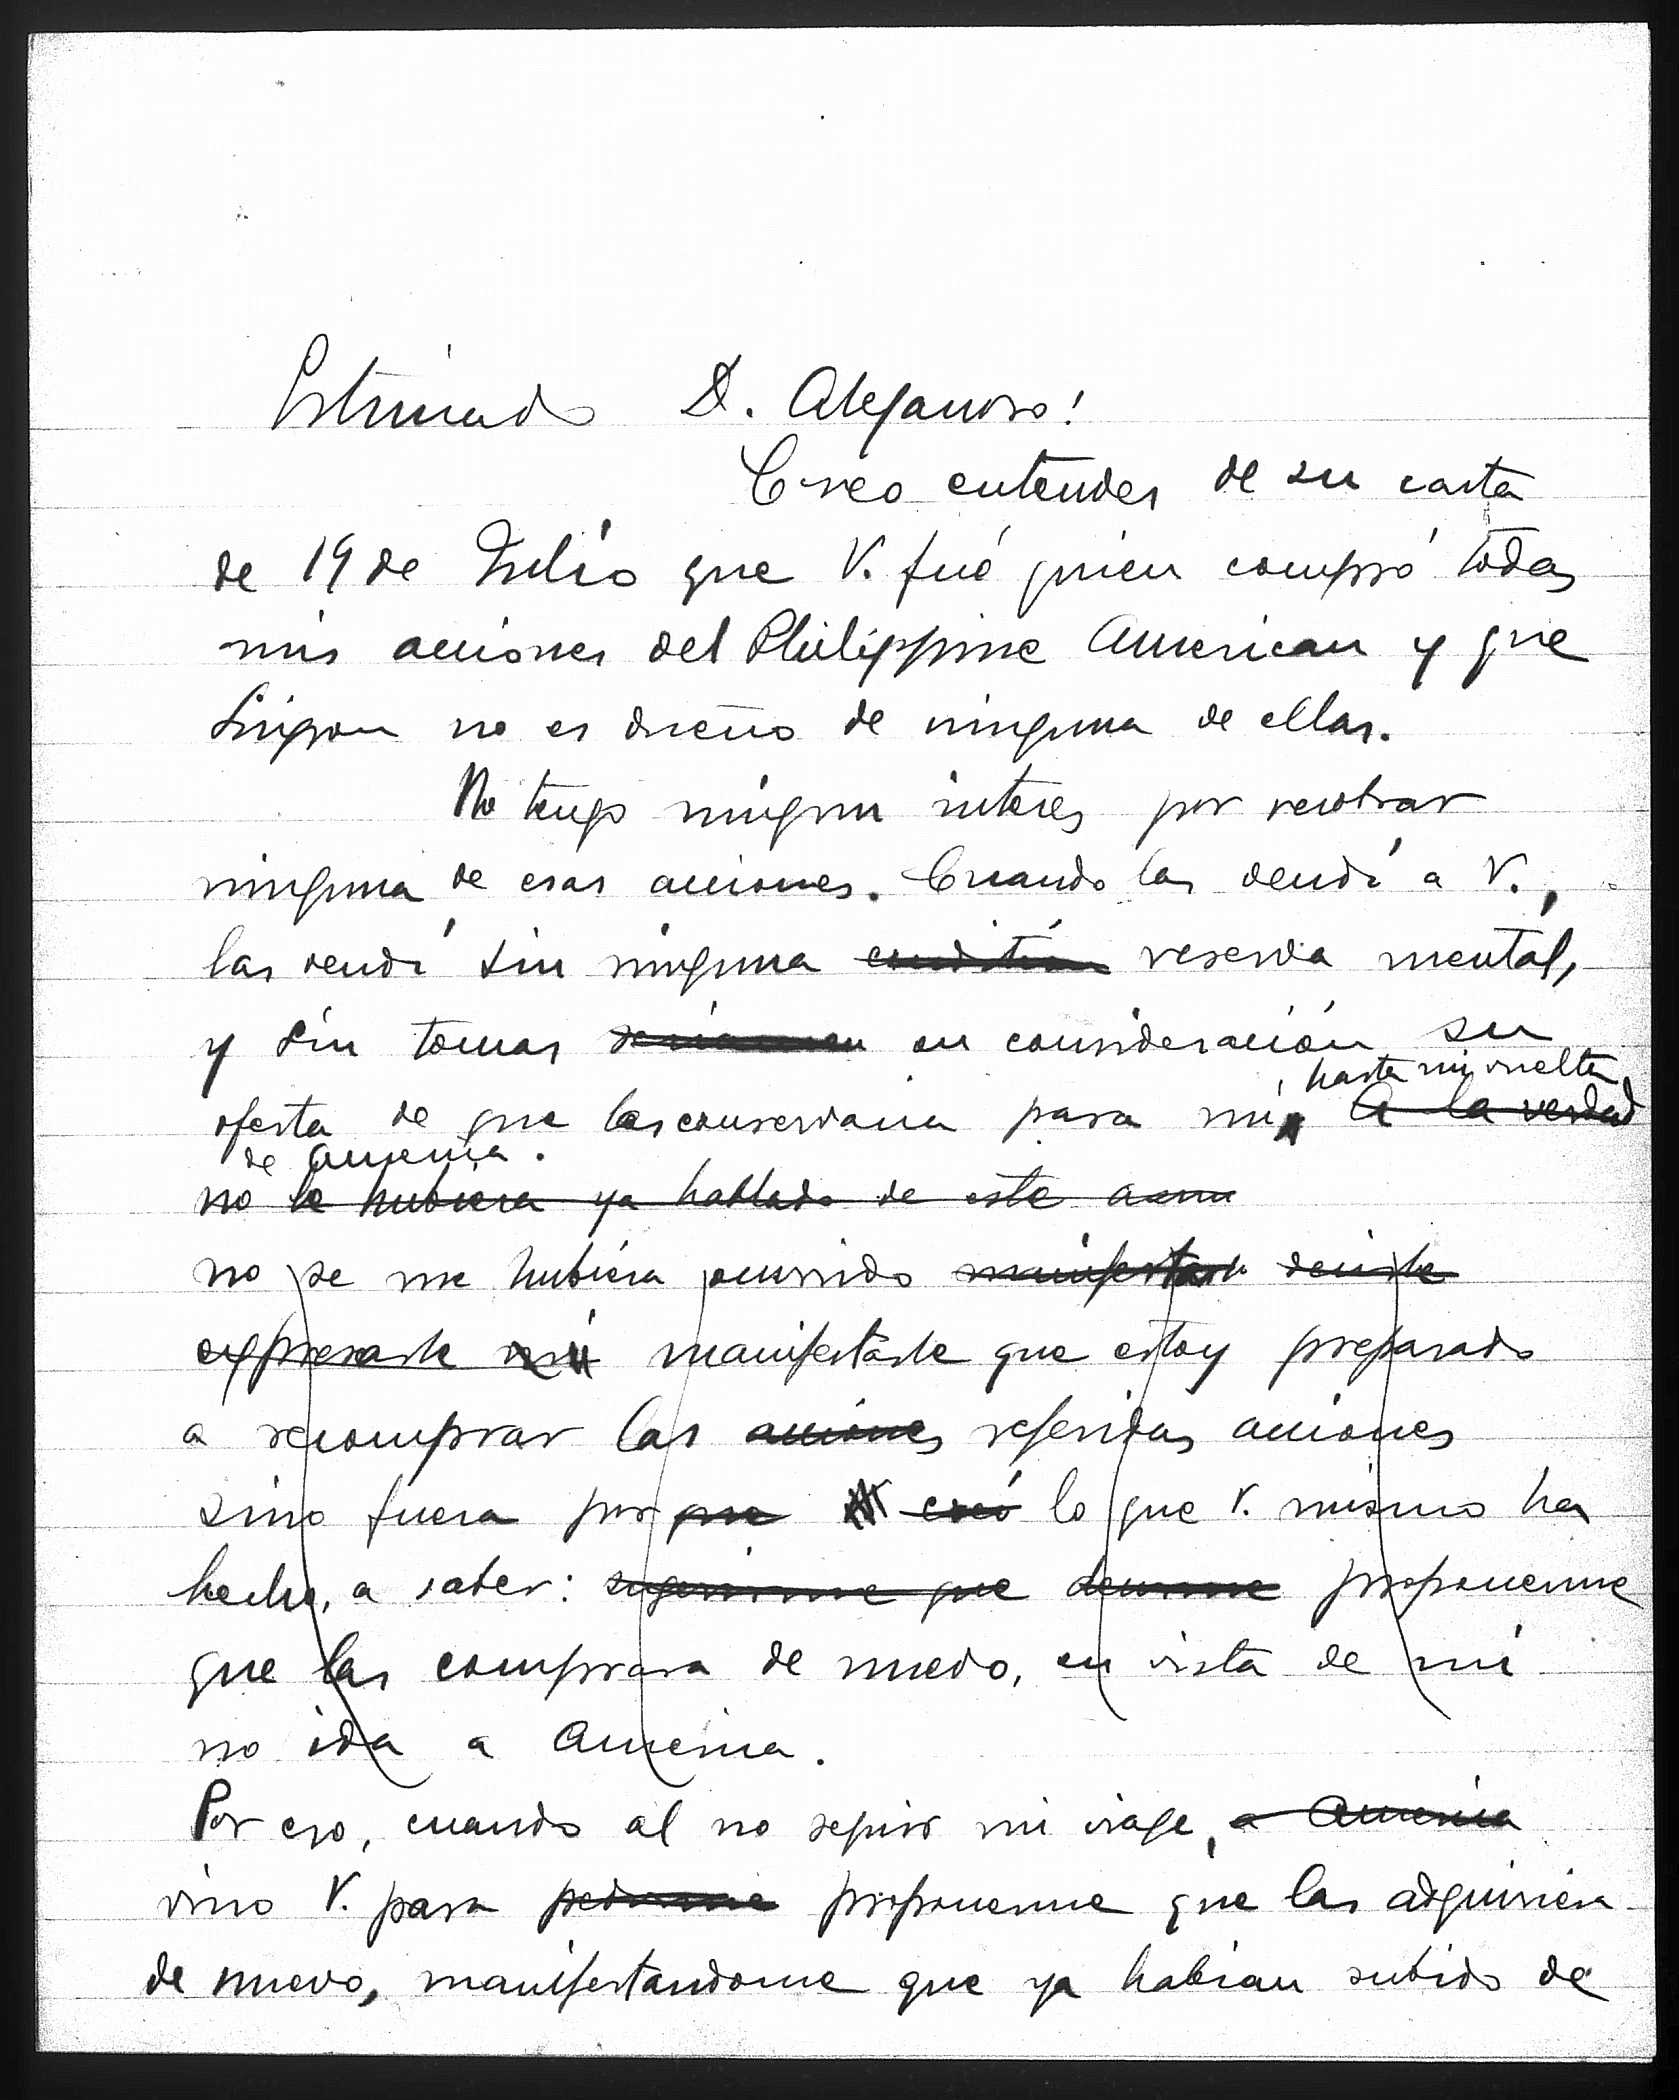 Estimado D. Alejandro!
Creo entender de su carta
de 19 de Julio que V. fué quien compró todas
mis acciones del Philippine American y que
Singson no es dueño de ninguna de ellas.
No tengo ningun interes por recobrar
ninguna de esas acciones. Cuando las vendí a V.,
las vendí sin ninguna condición reserva mental,
y sin tomar en consideración su
hasta mi vuelta
oferta de que las conservaria para mi, A la verdad
de America.
no le hubiera ya hablado de este
no se me hubiera ocurrido manifestarle decirle
expresarle manifestarle que estoy preparado
a recomprar las acciones referidas acciones
sino fuera por que lo que V. mismo ha
hecho, a saber: sugerirme que proponerme
que las comprara de nuevo, en vista de mi
no ida a America.
Por eso, cuando al no seguir mi viaje, a America
vino V. para pedirme proponerme que las adquiriera
de nuevo, manifestandome que ya habian subido de